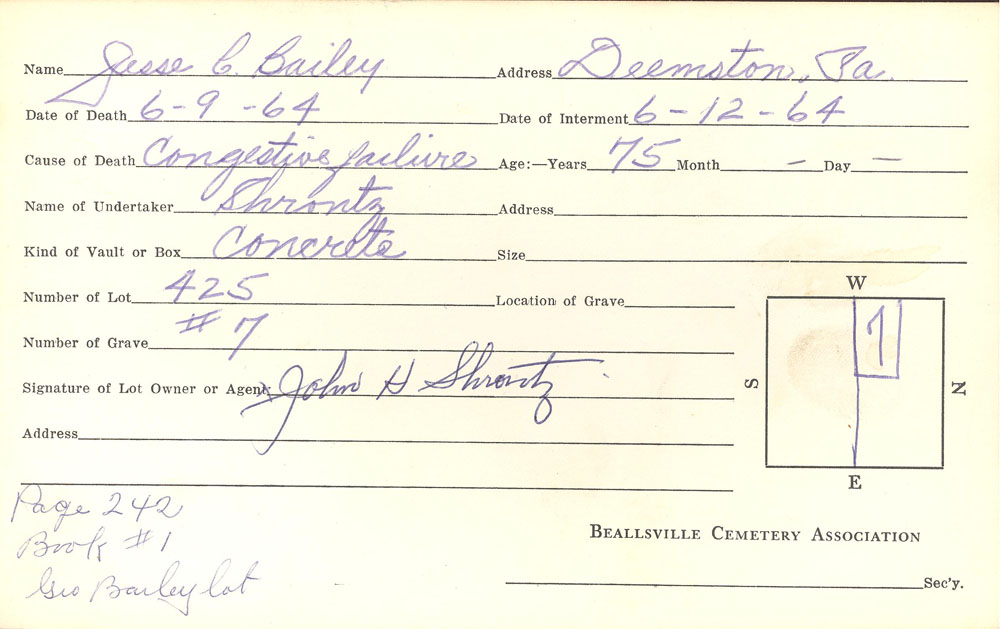 Name Jesse C. Bailey Address Deemston, Pa.
Date of Death 6-9-64 Date of Interment 6-12-64
Cause of Death Congestive failure Age:—Years 75 Month — Day —
Name of Undertaker Shrontz Address
Kind of Vault or Box Concrete Size
Number of Lot 425 Location of Grave
Number of Grave # 7
Signature of Lot Owner or Agent x John H Shrontz
Address
W
7
S
N
E
Page 242
Book #1
Geo Bailey lot
BEALLSVILLE CEMETERY ASSOCIATION
Sec'y.